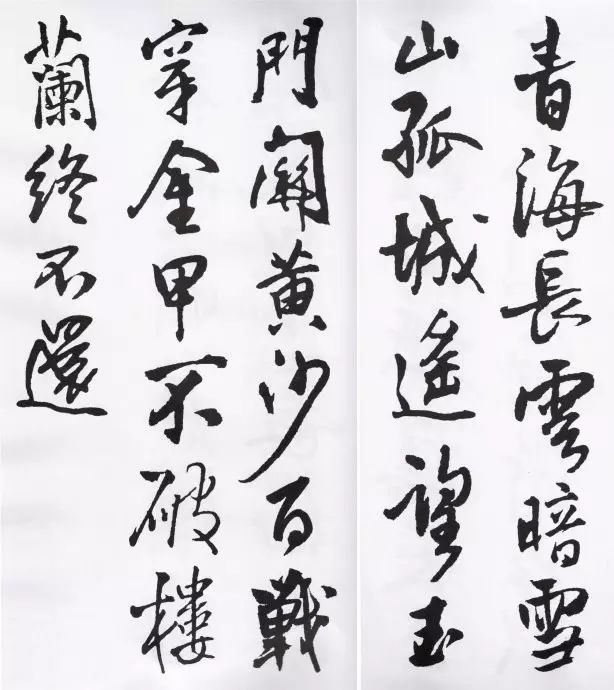 青海長雲暗雪
山孤城遙望玉
門關黃沙百戰
穿金甲不破樓
蘭終不還